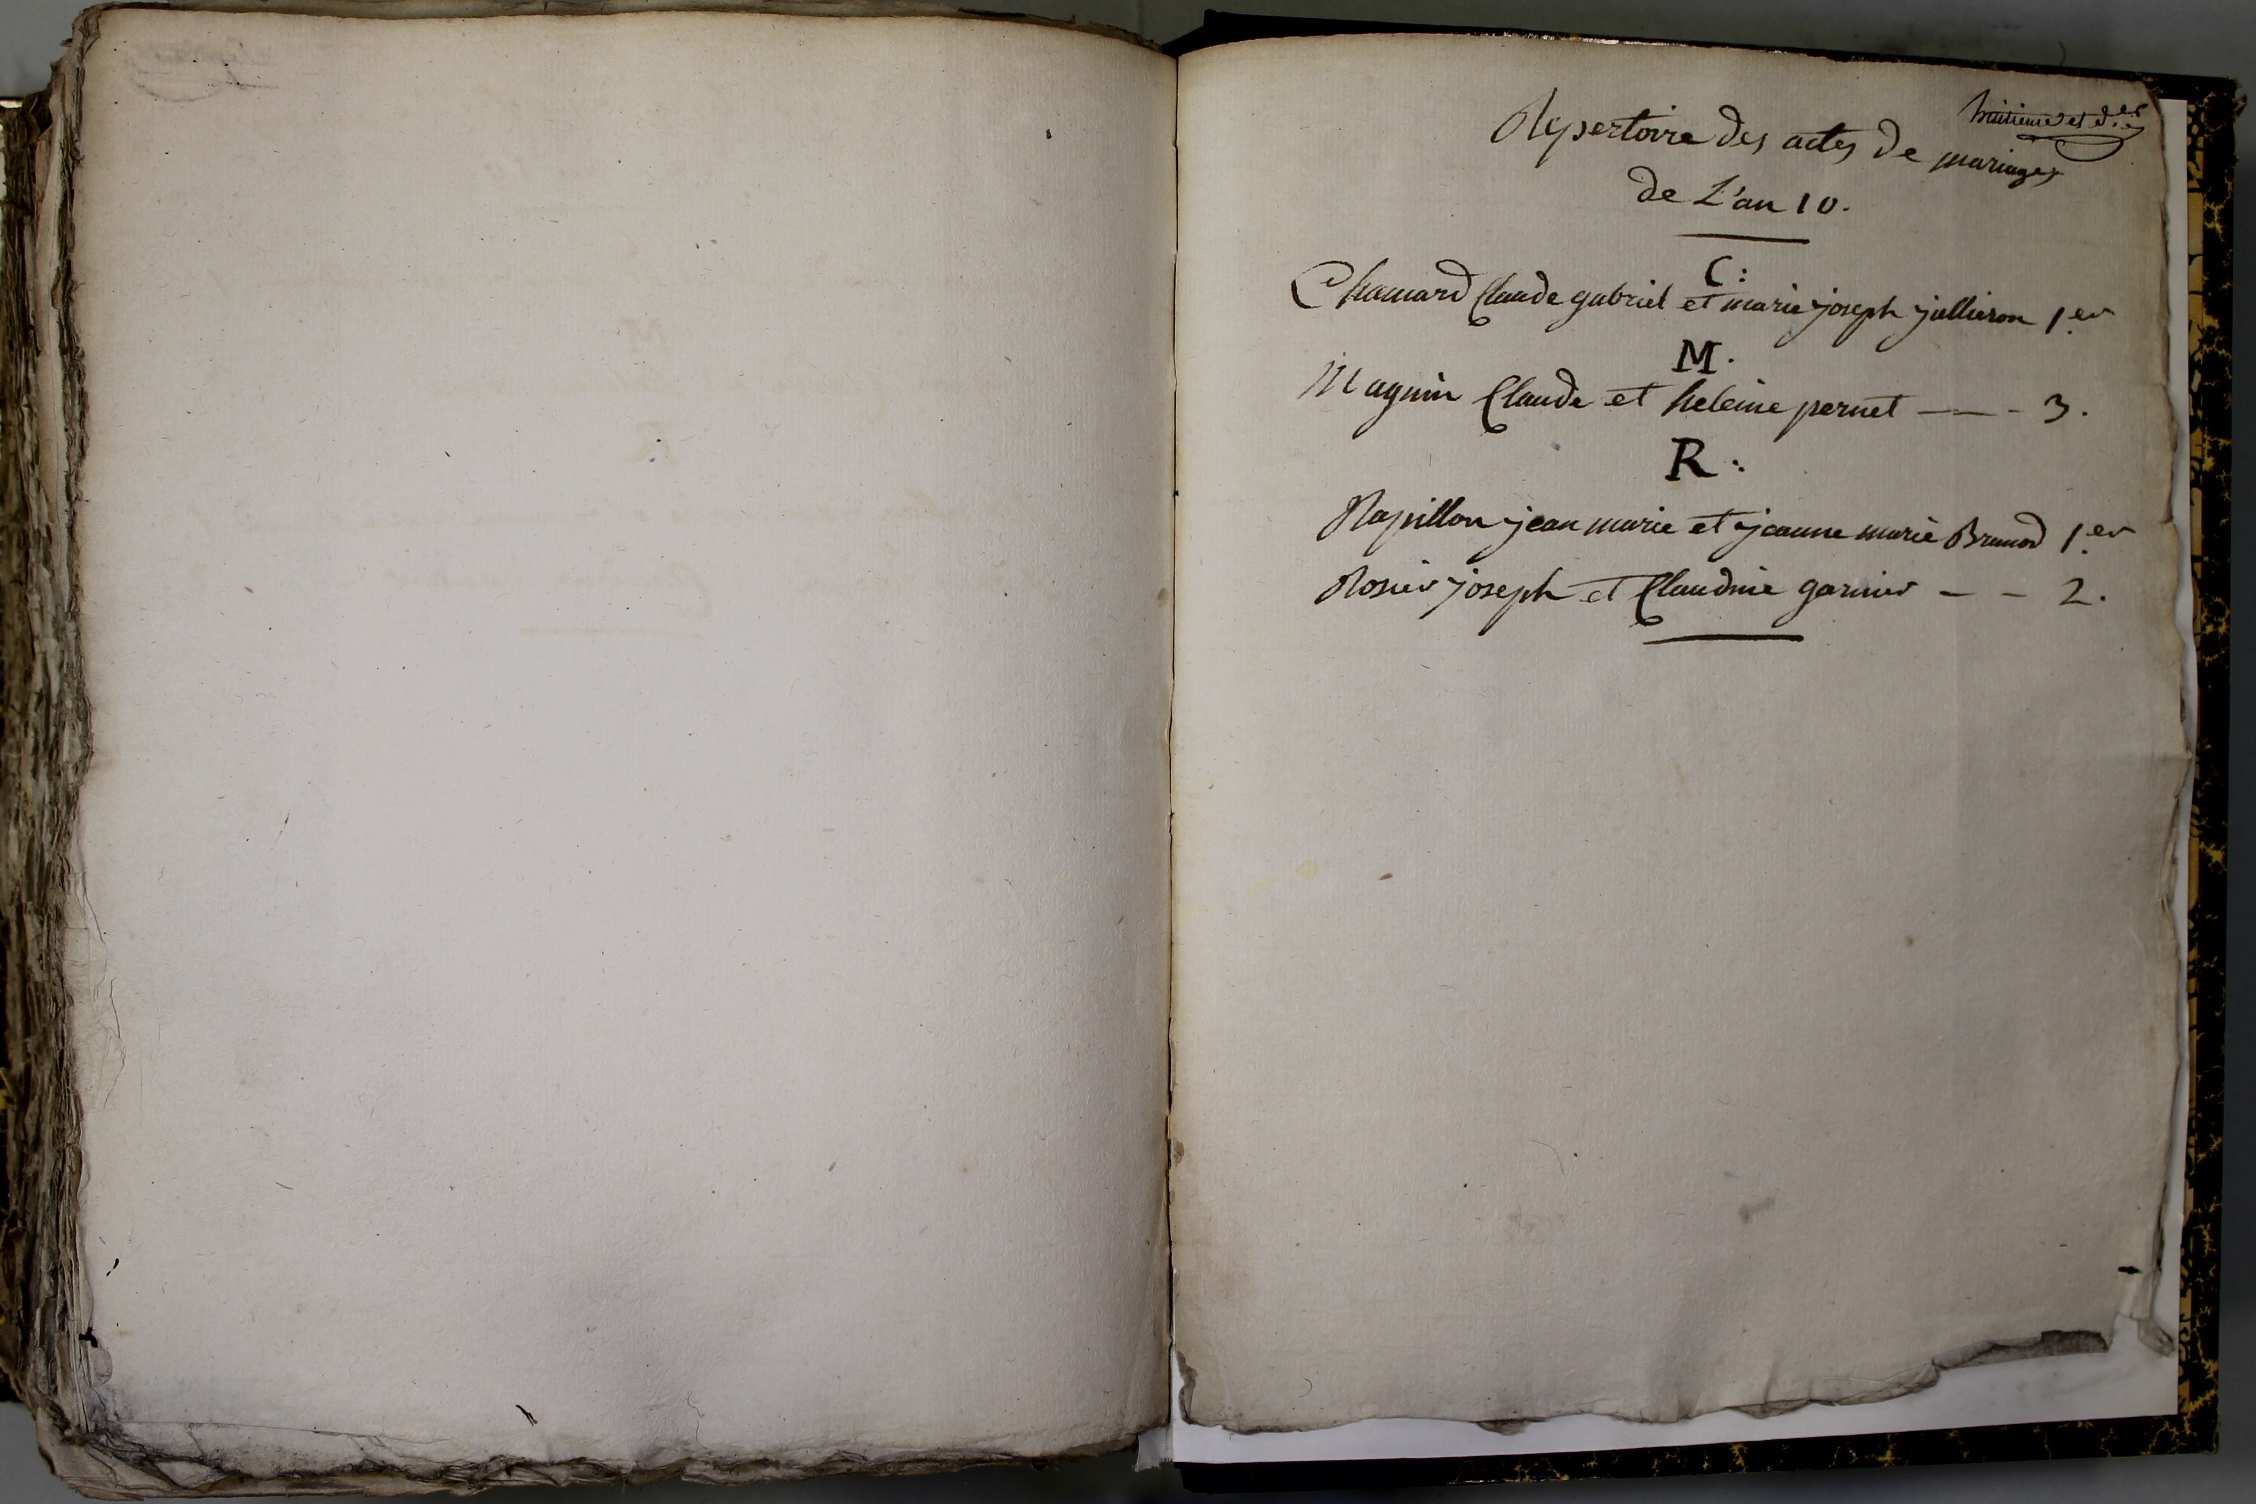 huitieme et d.er
Repertoire des actes de mariages
de L'an 10.
C:
Chamard Claude gabriel et marie joseph jullieron 1.er
M.
Magnin Claude et heleine pernet - - - 3.
R:
Rapillon jean marie et jeanne marie Brunod 1.er
Rosier joseph et Claudine garnier - - 2.